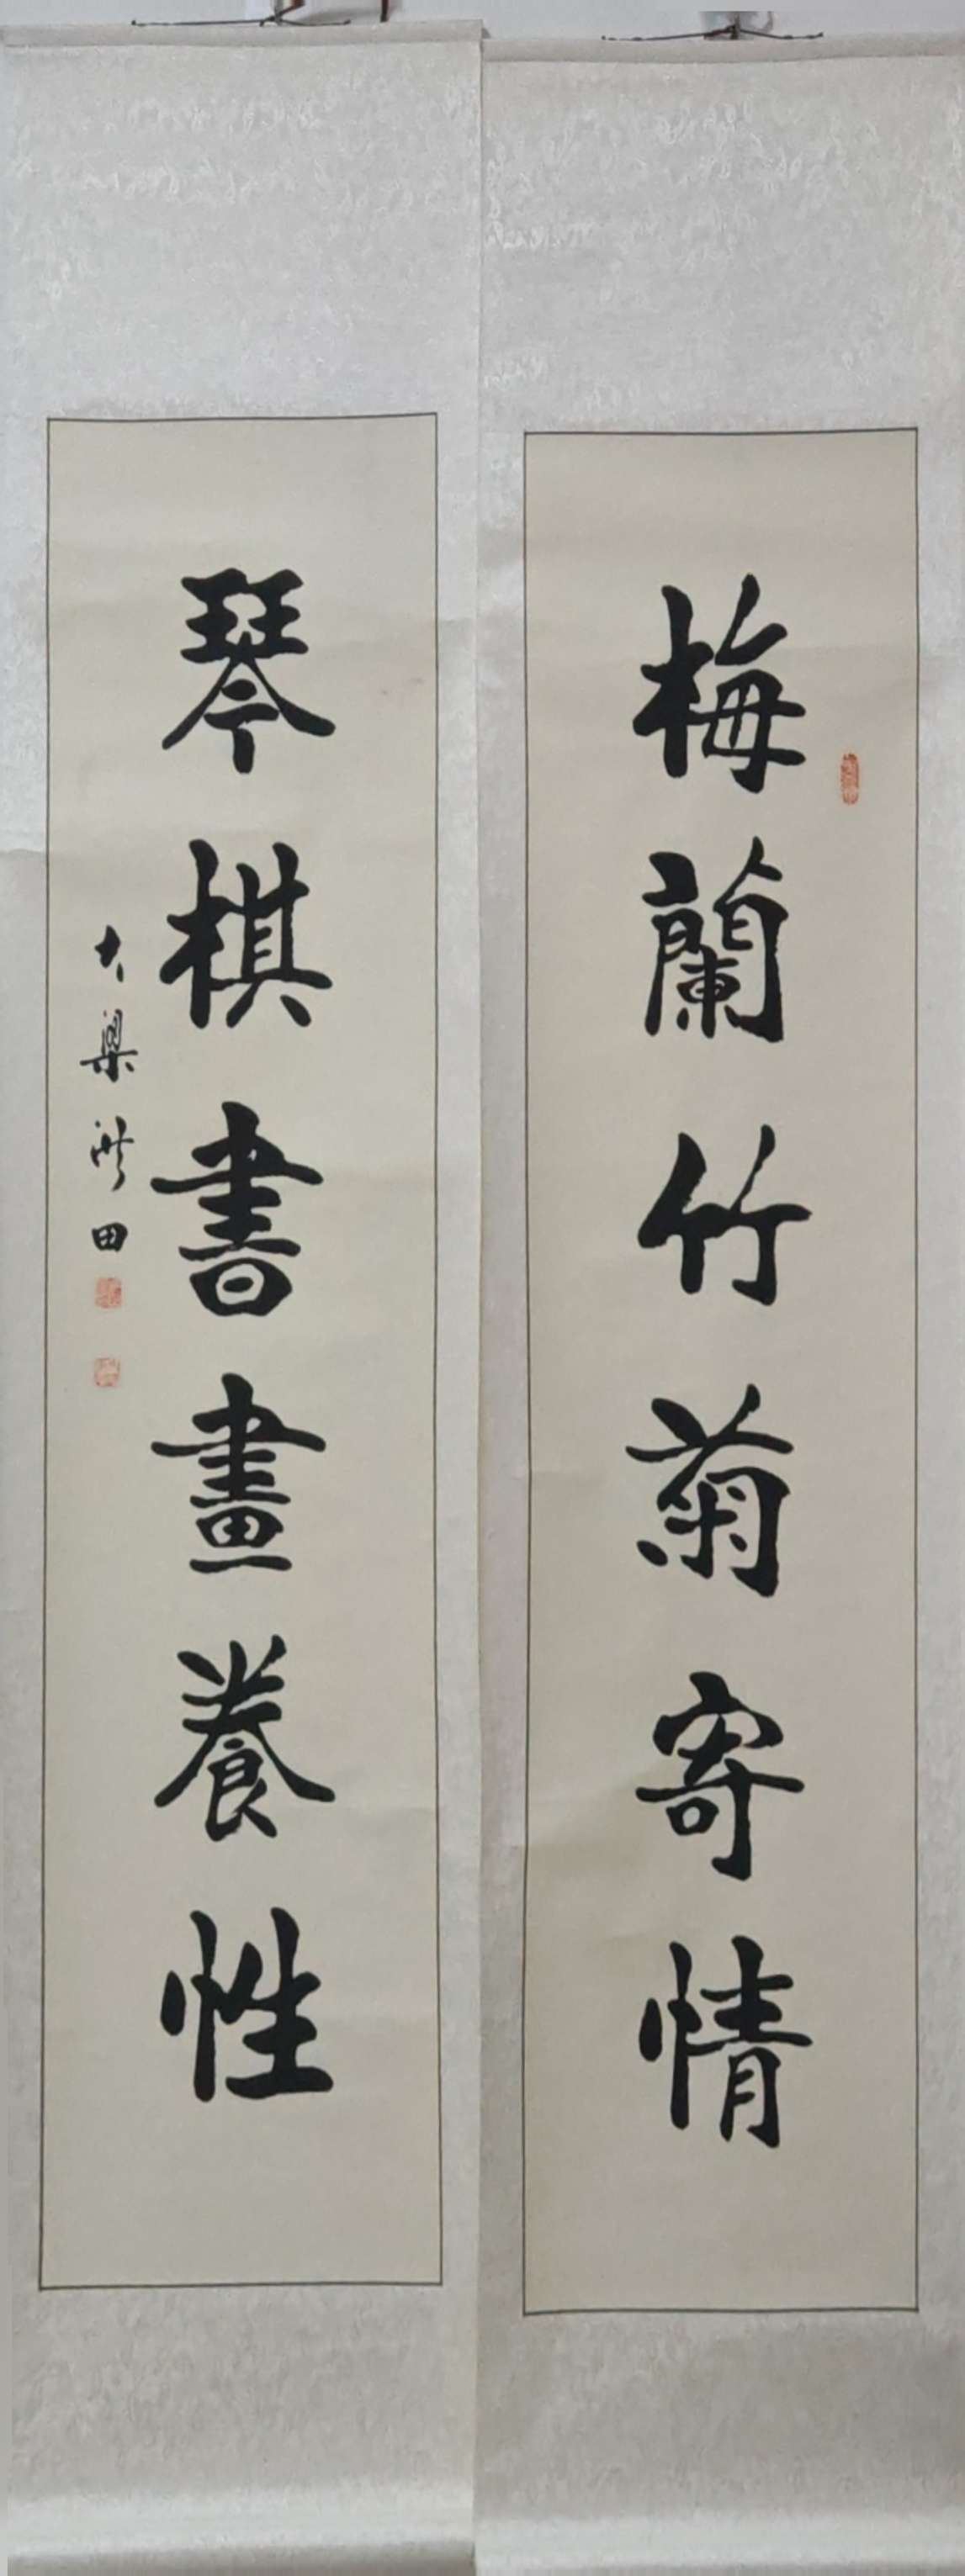 梅蘭竹菊寄情
琴棋書畫養性
大梁
田